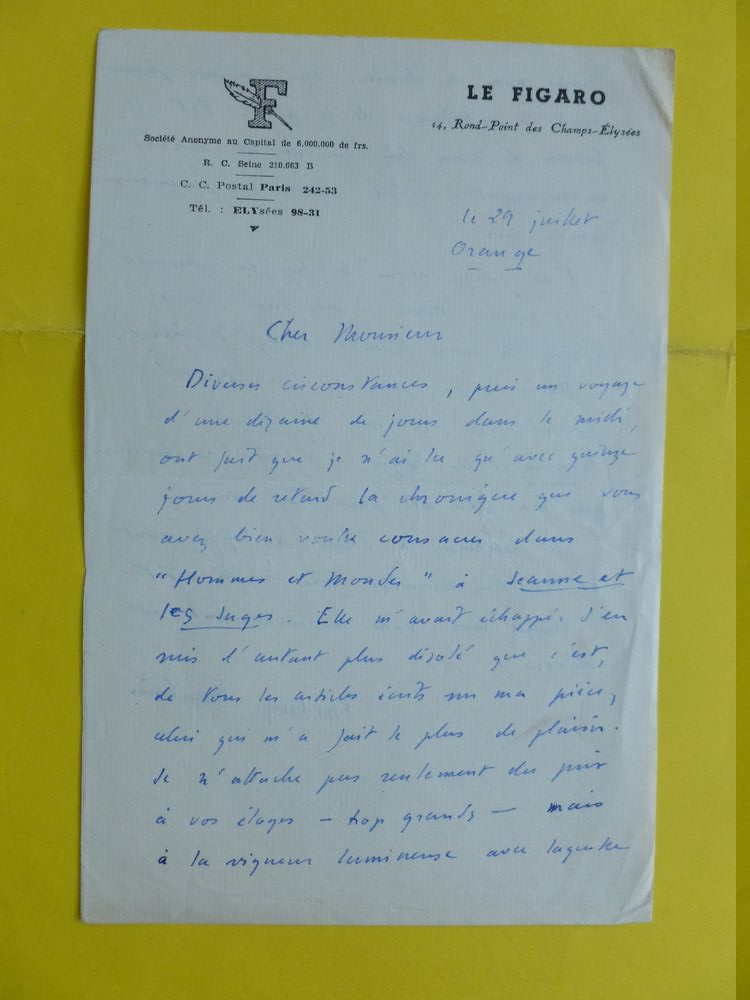 F
LE FIGARO
14, Rond-Point des Champs-Élysées
Société Anonyme au Capital de 6.000.000 de frs.
R. C. Seine 210.663 B
C. C. Postal Paris 242-53
Tél. : ELYsées 98-31
le 29 juillet
Orange
Cher Monsieur
Diverses circonstances, puis un voyage
d'une dizaine de jours dans le midi,
ont fait que je n'ai lu qu'avec quinze
jours de retard la chronique que vous
avez bien voulu consacrer dans
"Hommes et Mondes" à Jeanne et
les Juges. Elle m'avait échappé. J'en
suis d'autant plus désolé que c'est,
de tous les articles écrits sur ma pièce,
celui qui m'a fait le plus de plaisir.
Je n'attache pas seulement du prix
à vos éloges — trop grands — mais
à la vigueur lumineuse avec laquelle